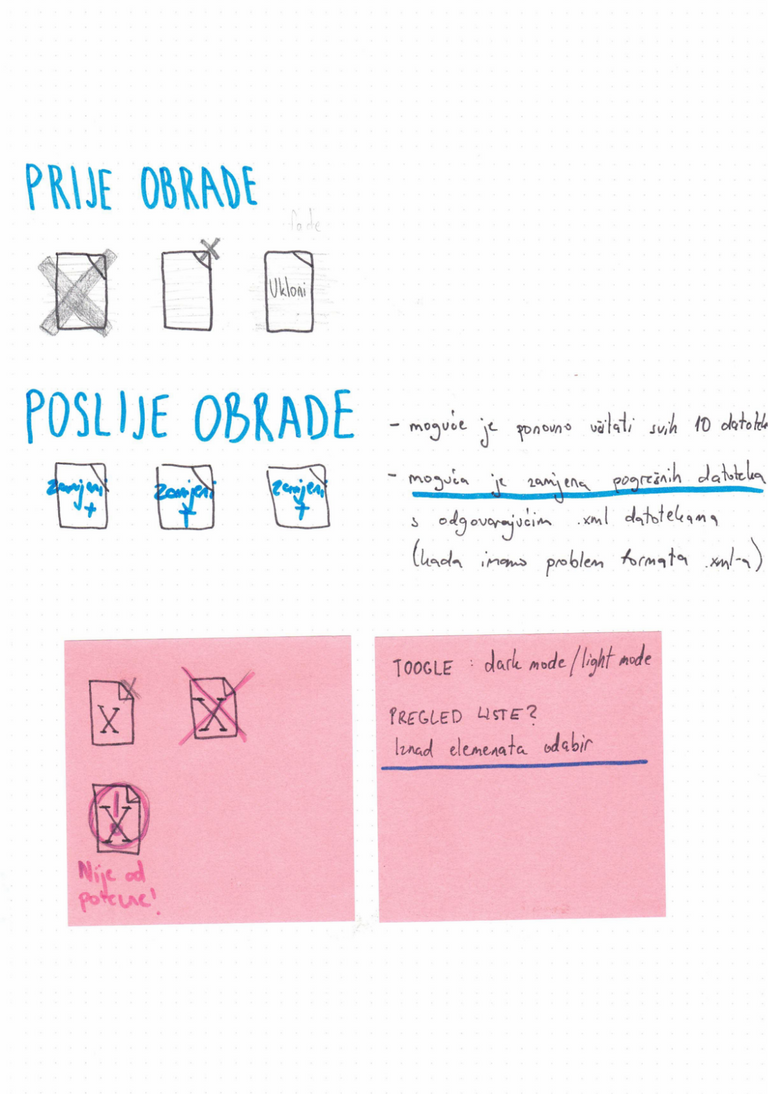 PRIJE OBRADE
fade
Ukloni
POSLIJE OBRADE
zamjeni
+
zamjeni
+
zamjeni
+
- moguće je ponovno učitati svih 10
- moguća je zamjena pogrešnih datoteka
s odgovarajućim .xml datotekama
(kada imamo problem formata .xml-a)
X
X
X
Nije od
potcure!
TOOGLE : dark mode/light mode
PREGLED LISTE?
Iznad elemenata odabir